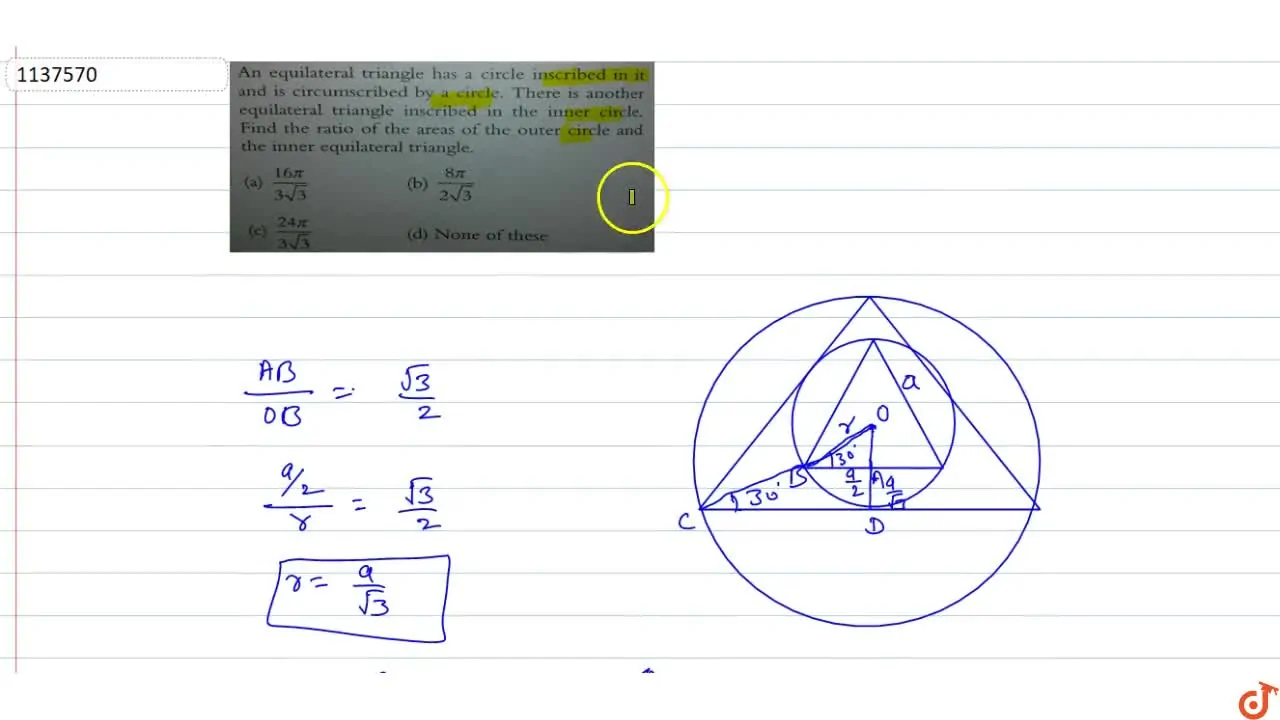 1137570
An equilateral triangle has a circle inscribed in it
and is circumscribed by a circle. There is another
equilateral triangle inscribed in the inner circle.
Find the ratio of the areas of the outer circle and
the inner equilateral triangle.
(a) 16π/3√3 (b) 8π/2√3
(c) 24π/3√3 (d) None of these
AB/OB = √3/2
a/2/r = √3/2
r = a/√3
a
O
r
30°
B
a/2
A
a/√3
30°
C
D
d